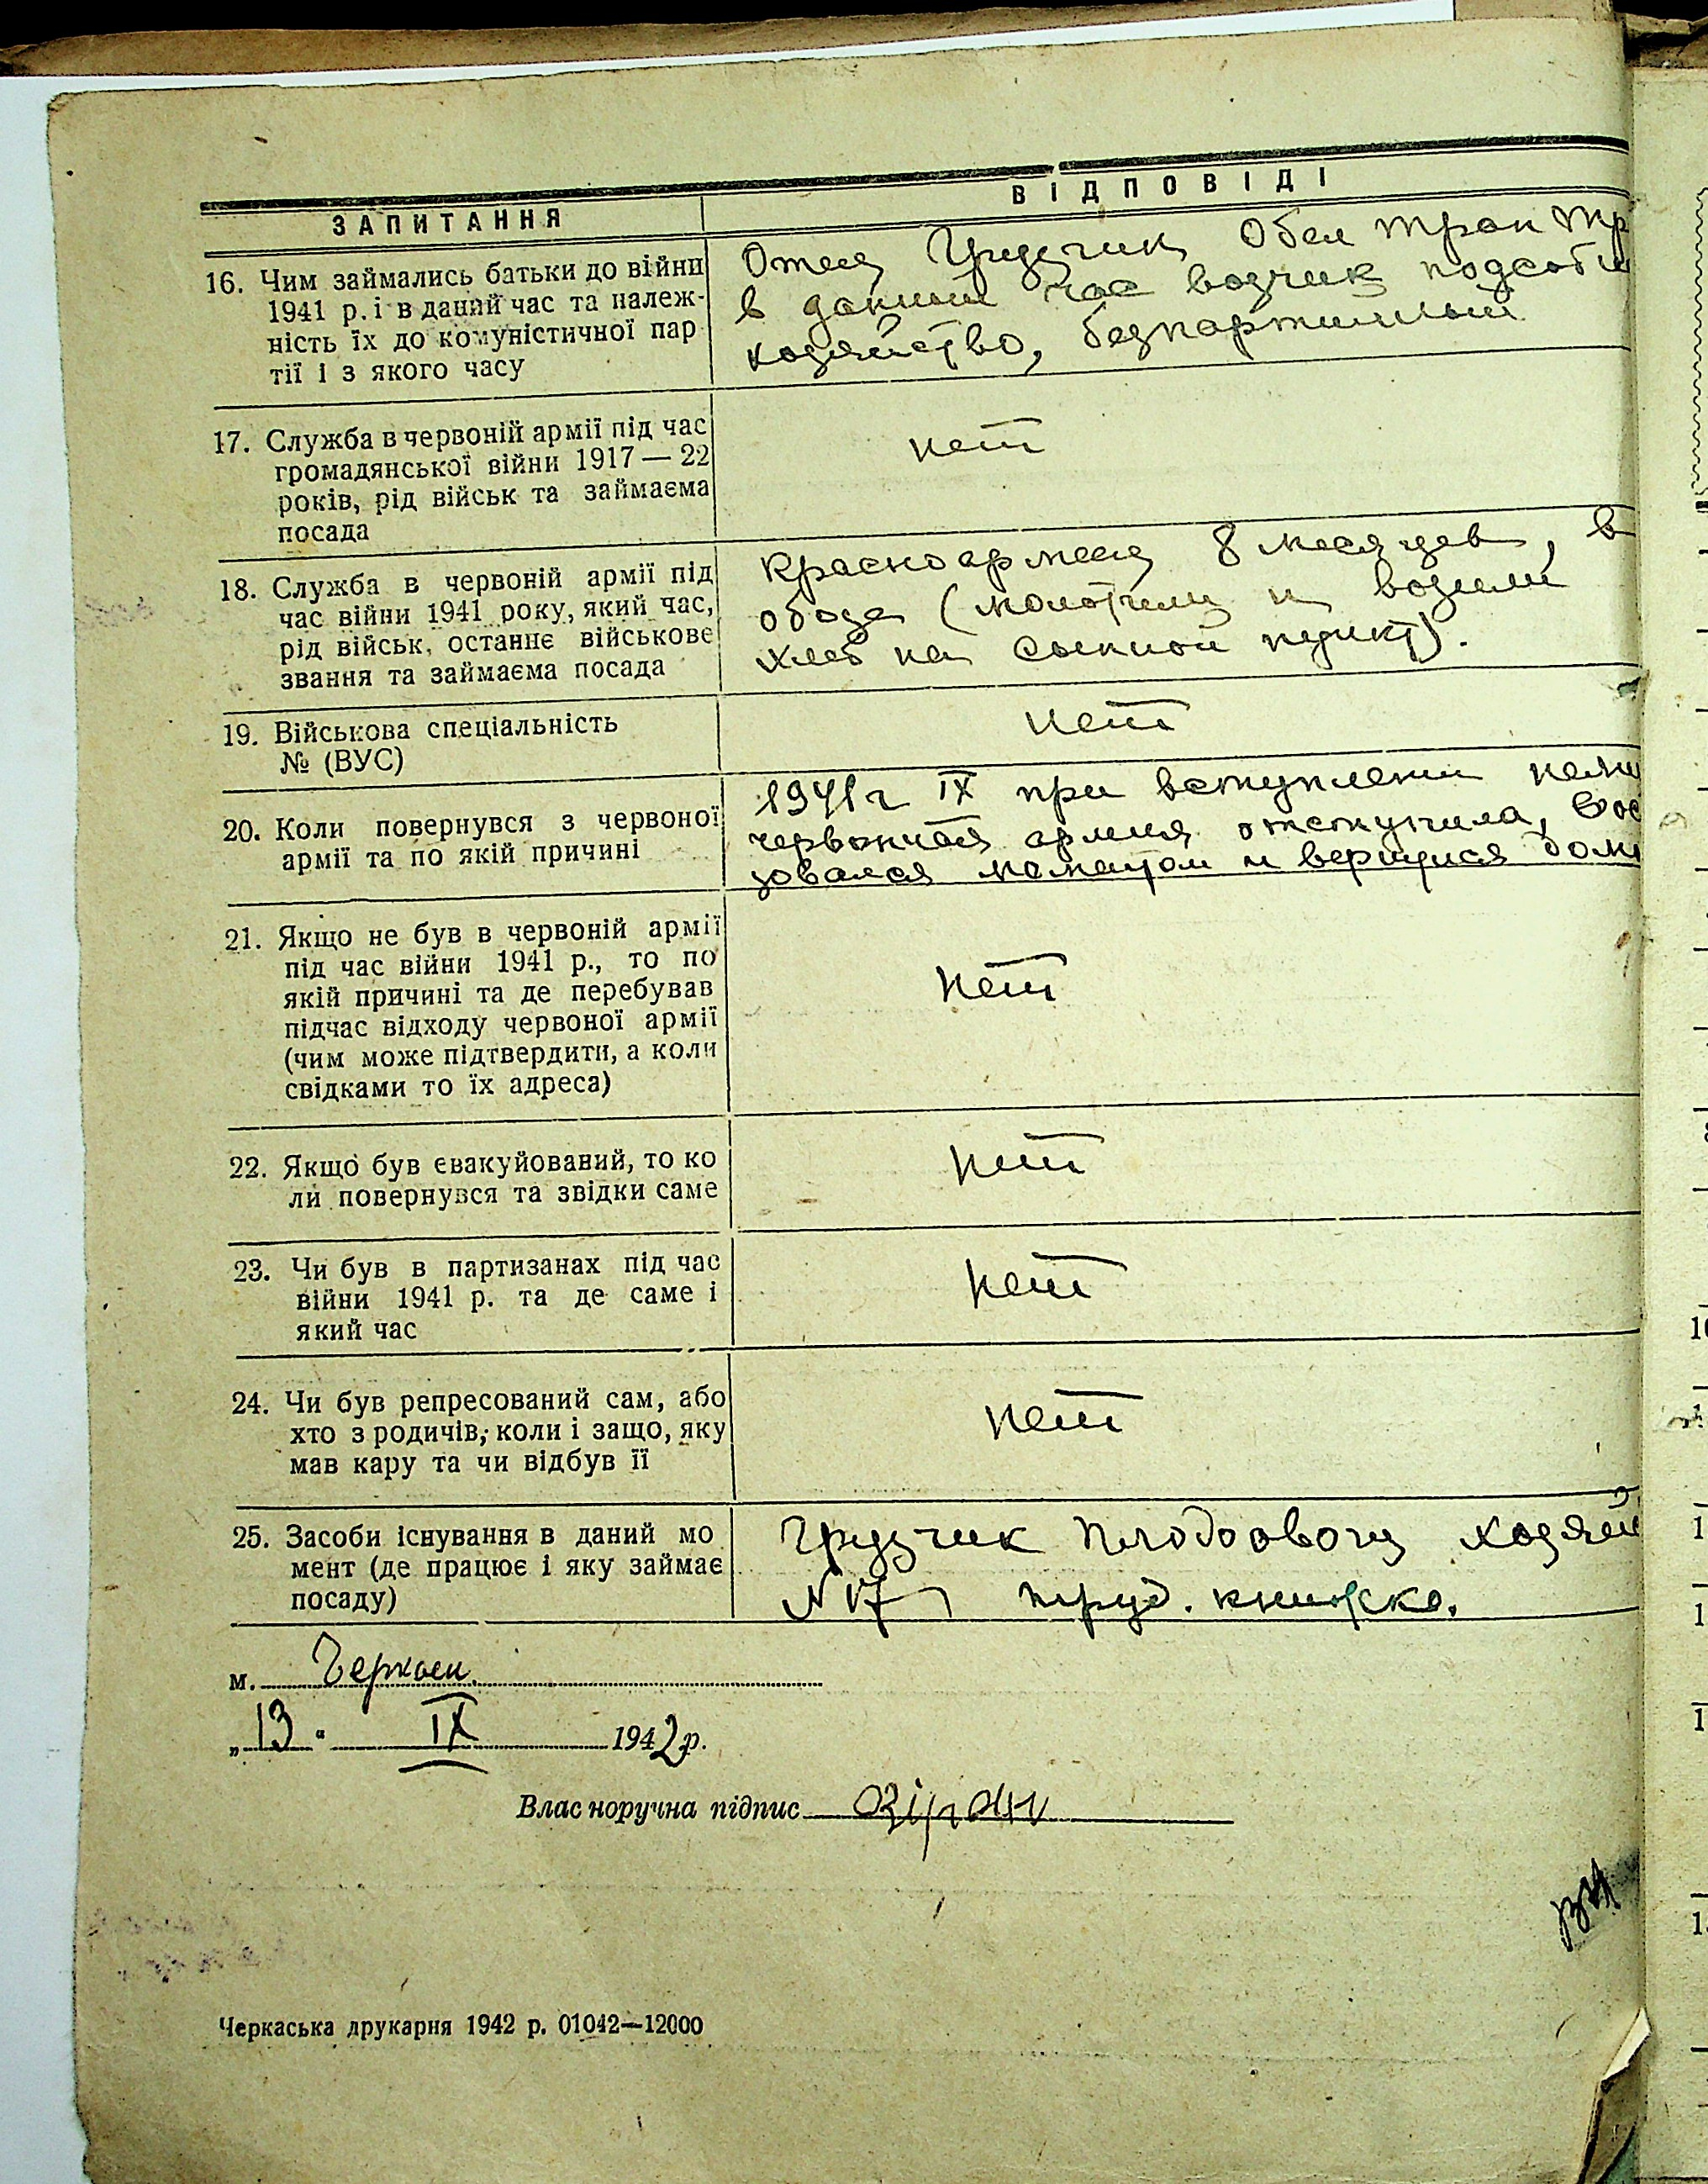 ЗАПИТАННЯ
ВІДПОВІДІ
16. Чим займались батьки до війни
1941 р. і в даний час та належ-
ність їх до комуністичної пар
тії і з якого часу
Отец Грузчик Обл тран тр
в данный час возчик подсобн
хозяйство, безпартийный
17. Служба в червоній армії під час
громадянської війни 1917 — 22
років, рід військ та займаєма
посада
нет
18. Служба в червоній армії під
час війни 1941 року, який час,
рід військ, останнє військове
звання та займаєма посада
Красноармеец 8 месяцев, в
обозе (молотили и возили
хлеб на сыпной пункт).
19. Військова спеціальність
№ (ВУС)
нет
20. Коли повернувся з червоної
армії та по якій причині
1941 г IX при вступлени неме
армия отступила, вос
зовался и вернулся дом
21. Якщо не був в червоній армії
під час війни 1941 р., то по
якій причині та де перебував
підчас відходу червоної армії
(чим може підтвердити, а коли
свідками то їх адреса)
нет
22. Якщо був евакуйований, то ко
ли повернувся та звідки саме
нет
23. Чи був в партизанах під час
війни 1941 р. та де саме і
який час
нет
24. Чи був репресований сам, або
хто з родичів, коли і защо, яку
мав кару та чи відбув її
нет
25. Засоби існування в даний мо
мент (де працює і яку займає
посаду)
Грузчик хозяй
N 17 труд. книжка.
м. Черкасы
„13" IX 1942 р.
Власноручна підпис
Черкаська друкарня 1942 р. 01042—12000